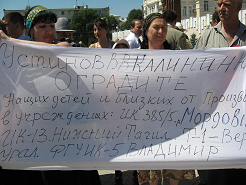 Устинов Калинин
ОГРАДИТЕ
Наших детей и близких от Произв
в учреждениях: ИК 385/5, Мордов
ИК-13. Нижний Тагил Т-1-Вер
Урал. ФГУИК-5 ВЛАДИМИР